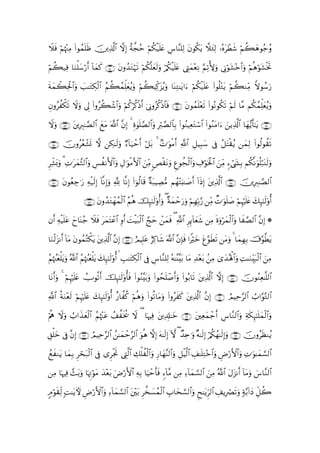 وُجُوهَكُمْ شَطْرَهُۥ لِئَلَّا يَكُونَ لِلنَّاسِ عَلَيْكُمْ حُجَّةٌ إِلَّا ٱلَّذِينَ ظَلَمُوا۟ مِنْهُمْ فَلَا
تَخْشَوْهُمْ وَٱخْشَوْنِى وَلِأُتِمَّ نِعْمَتِى عَلَيْكُمْ وَلَعَلَّكُمْ تَهْتَدُونَ ۝ كَمَآ أَرْسَلْنَا فِيكُمْ
رَسُولًا مِّنكُمْ يَتْلُوا۟ عَلَيْكُمْ ءَايَٰتِنَا وَيُزَكِّيكُمْ وَيُعَلِّمُكُمُ ٱلْكِتَٰبَ وَٱلْحِكْمَةَ
وَيُعَلِّمُكُم مَّا لَمْ تَكُونُوا۟ تَعْلَمُونَ ۝ فَٱذْكُرُونِىٓ أَذْكُرْكُمْ وَٱشْكُرُوا۟ لِى وَلَا تَكْفُرُونِ
۝ يَٰٓأَيُّهَا ٱلَّذِينَ ءَامَنُوا۟ ٱسْتَعِينُوا۟ بِٱلصَّبْرِ وَٱلصَّلَوٰةِ ۚ إِنَّ ٱللَّهَ مَعَ ٱلصَّٰبِرِينَ ۝ وَلَا
تَقُولُوا۟ لِمَن يُقْتَلُ فِى سَبِيلِ ٱللَّهِ أَمْوَٰتٌۢ ۚ بَلْ أَحْيَآءٌ وَلَٰكِن لَّا تَشْعُرُونَ ۝
وَلَنَبْلُوَنَّكُم بِشَىْءٍ مِّنَ ٱلْخَوْفِ وَٱلْجُوعِ وَنَقْصٍ مِّنَ ٱلْأَمْوَٰلِ وَٱلْأَنفُسِ وَٱلثَّمَرَٰتِ ۗ وَبَشِّرِ
ٱلصَّٰبِرِينَ ۝ ٱلَّذِينَ إِذَآ أَصَٰبَتْهُم مُّصِيبَةٌ قَالُوٓا۟ إِنَّا لِلَّهِ وَإِنَّآ إِلَيْهِ رَٰجِعُونَ ۝
أُو۟لَٰٓئِكَ عَلَيْهِمْ صَلَوَٰتٌ مِّن رَّبِّهِمْ وَرَحْمَةٌ ۖ وَأُو۟لَٰٓئِكَ هُمُ ٱلْمُهْتَدُونَ ۝
۞ إِنَّ ٱلصَّفَا وَٱلْمَرْوَةَ مِن شَعَآئِرِ ٱللَّهِ ۖ فَمَنْ حَجَّ ٱلْبَيْتَ أَوِ ٱعْتَمَرَ فَلَا جُنَاحَ عَلَيْهِ أَن
يَطَّوَّفَ بِهِمَا ۚ وَمَن تَطَوَّعَ خَيْرًا فَإِنَّ ٱللَّهَ شَاكِرٌ عَلِيمٌ ۝ إِنَّ ٱلَّذِينَ يَكْتُمُونَ مَآ أَنزَلْنَا
مِنَ ٱلْبَيِّنَٰتِ وَٱلْهُدَىٰ مِنۢ بَعْدِ مَا بَيَّنَّٰهُ لِلنَّاسِ فِى ٱلْكِتَٰبِ ۙ أُو۟لَٰٓئِكَ يَلْعَنُهُمُ ٱللَّهُ وَيَلْعَنُهُمُ
ٱللَّٰعِنُونَ ۝ إِلَّا ٱلَّذِينَ تَابُوا۟ وَأَصْلَحُوا۟ وَبَيَّنُوا۟ فَأُو۟لَٰٓئِكَ أَتُوبُ عَلَيْهِمْ ۚ وَأَنَا
ٱلتَّوَّابُ ٱلرَّحِيمُ ۝ إِنَّ ٱلَّذِينَ كَفَرُوا۟ وَمَاتُوا۟ وَهُمْ كُفَّارٌ أُو۟لَٰٓئِكَ عَلَيْهِمْ لَعْنَةُ ٱللَّهِ
وَٱلْمَلَٰٓئِكَةِ وَٱلنَّاسِ أَجْمَعِينَ ۝ خَٰلِدِينَ فِيهَا ۖ لَا يُخَفَّفُ عَنْهُمُ ٱلْعَذَابُ وَلَا هُمْ
يُنظَرُونَ ۝ وَإِلَٰهُكُمْ إِلَٰهٌ وَٰحِدٌ ۖ لَّآ إِلَٰهَ إِلَّا هُوَ ٱلرَّحْمَٰنُ ٱلرَّحِيمُ ۝ إِنَّ فِى خَلْقِ
ٱلسَّمَٰوَٰتِ وَٱلْأَرْضِ وَٱخْتِلَٰفِ ٱلَّيْلِ وَٱلنَّهَارِ وَٱلْفُلْكِ ٱلَّتِى تَجْرِى فِى ٱلْبَحْرِ بِمَا يَنفَعُ
ٱلنَّاسَ وَمَآ أَنزَلَ ٱللَّهُ مِنَ ٱلسَّمَآءِ مِن مَّآءٍ فَأَحْيَا بِهِ ٱلْأَرْضَ بَعْدَ مَوْتِهَا وَبَثَّ فِيهَا مِن
كُلِّ دَآبَّةٍ وَتَصْرِيفِ ٱلرِّيَٰحِ وَٱلسَّحَابِ ٱلْمُسَخَّرِ بَيْنَ ٱلسَّمَآءِ وَٱلْأَرْضِ لَءَايَٰتٍ لِّقَوْمٍ